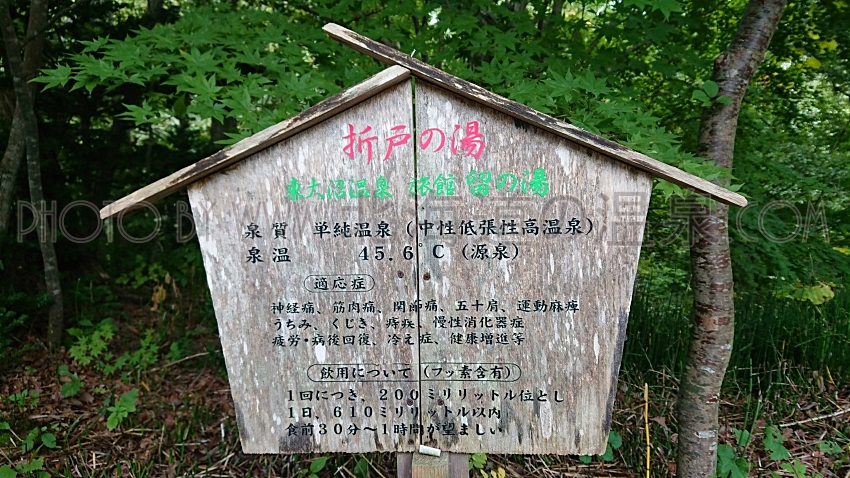 折戸の湯
東大沼温泉 旅館 留の湯
泉質 単純温泉（中性低張性高温泉）
泉温 45.6°C（源泉）
適応症
神経痛、筋肉痛、関節痛、五十肩、運動麻痺
うちみ、くじき、痔疾、慢性消化器症
疲労・病後回復、冷え症、健康増進等
飲用について（フッ素含有）
1回につき、200ミリリットル位とし
1日、610ミリリットル以内
食前30分〜1時間が望ましい
PHOTO BY